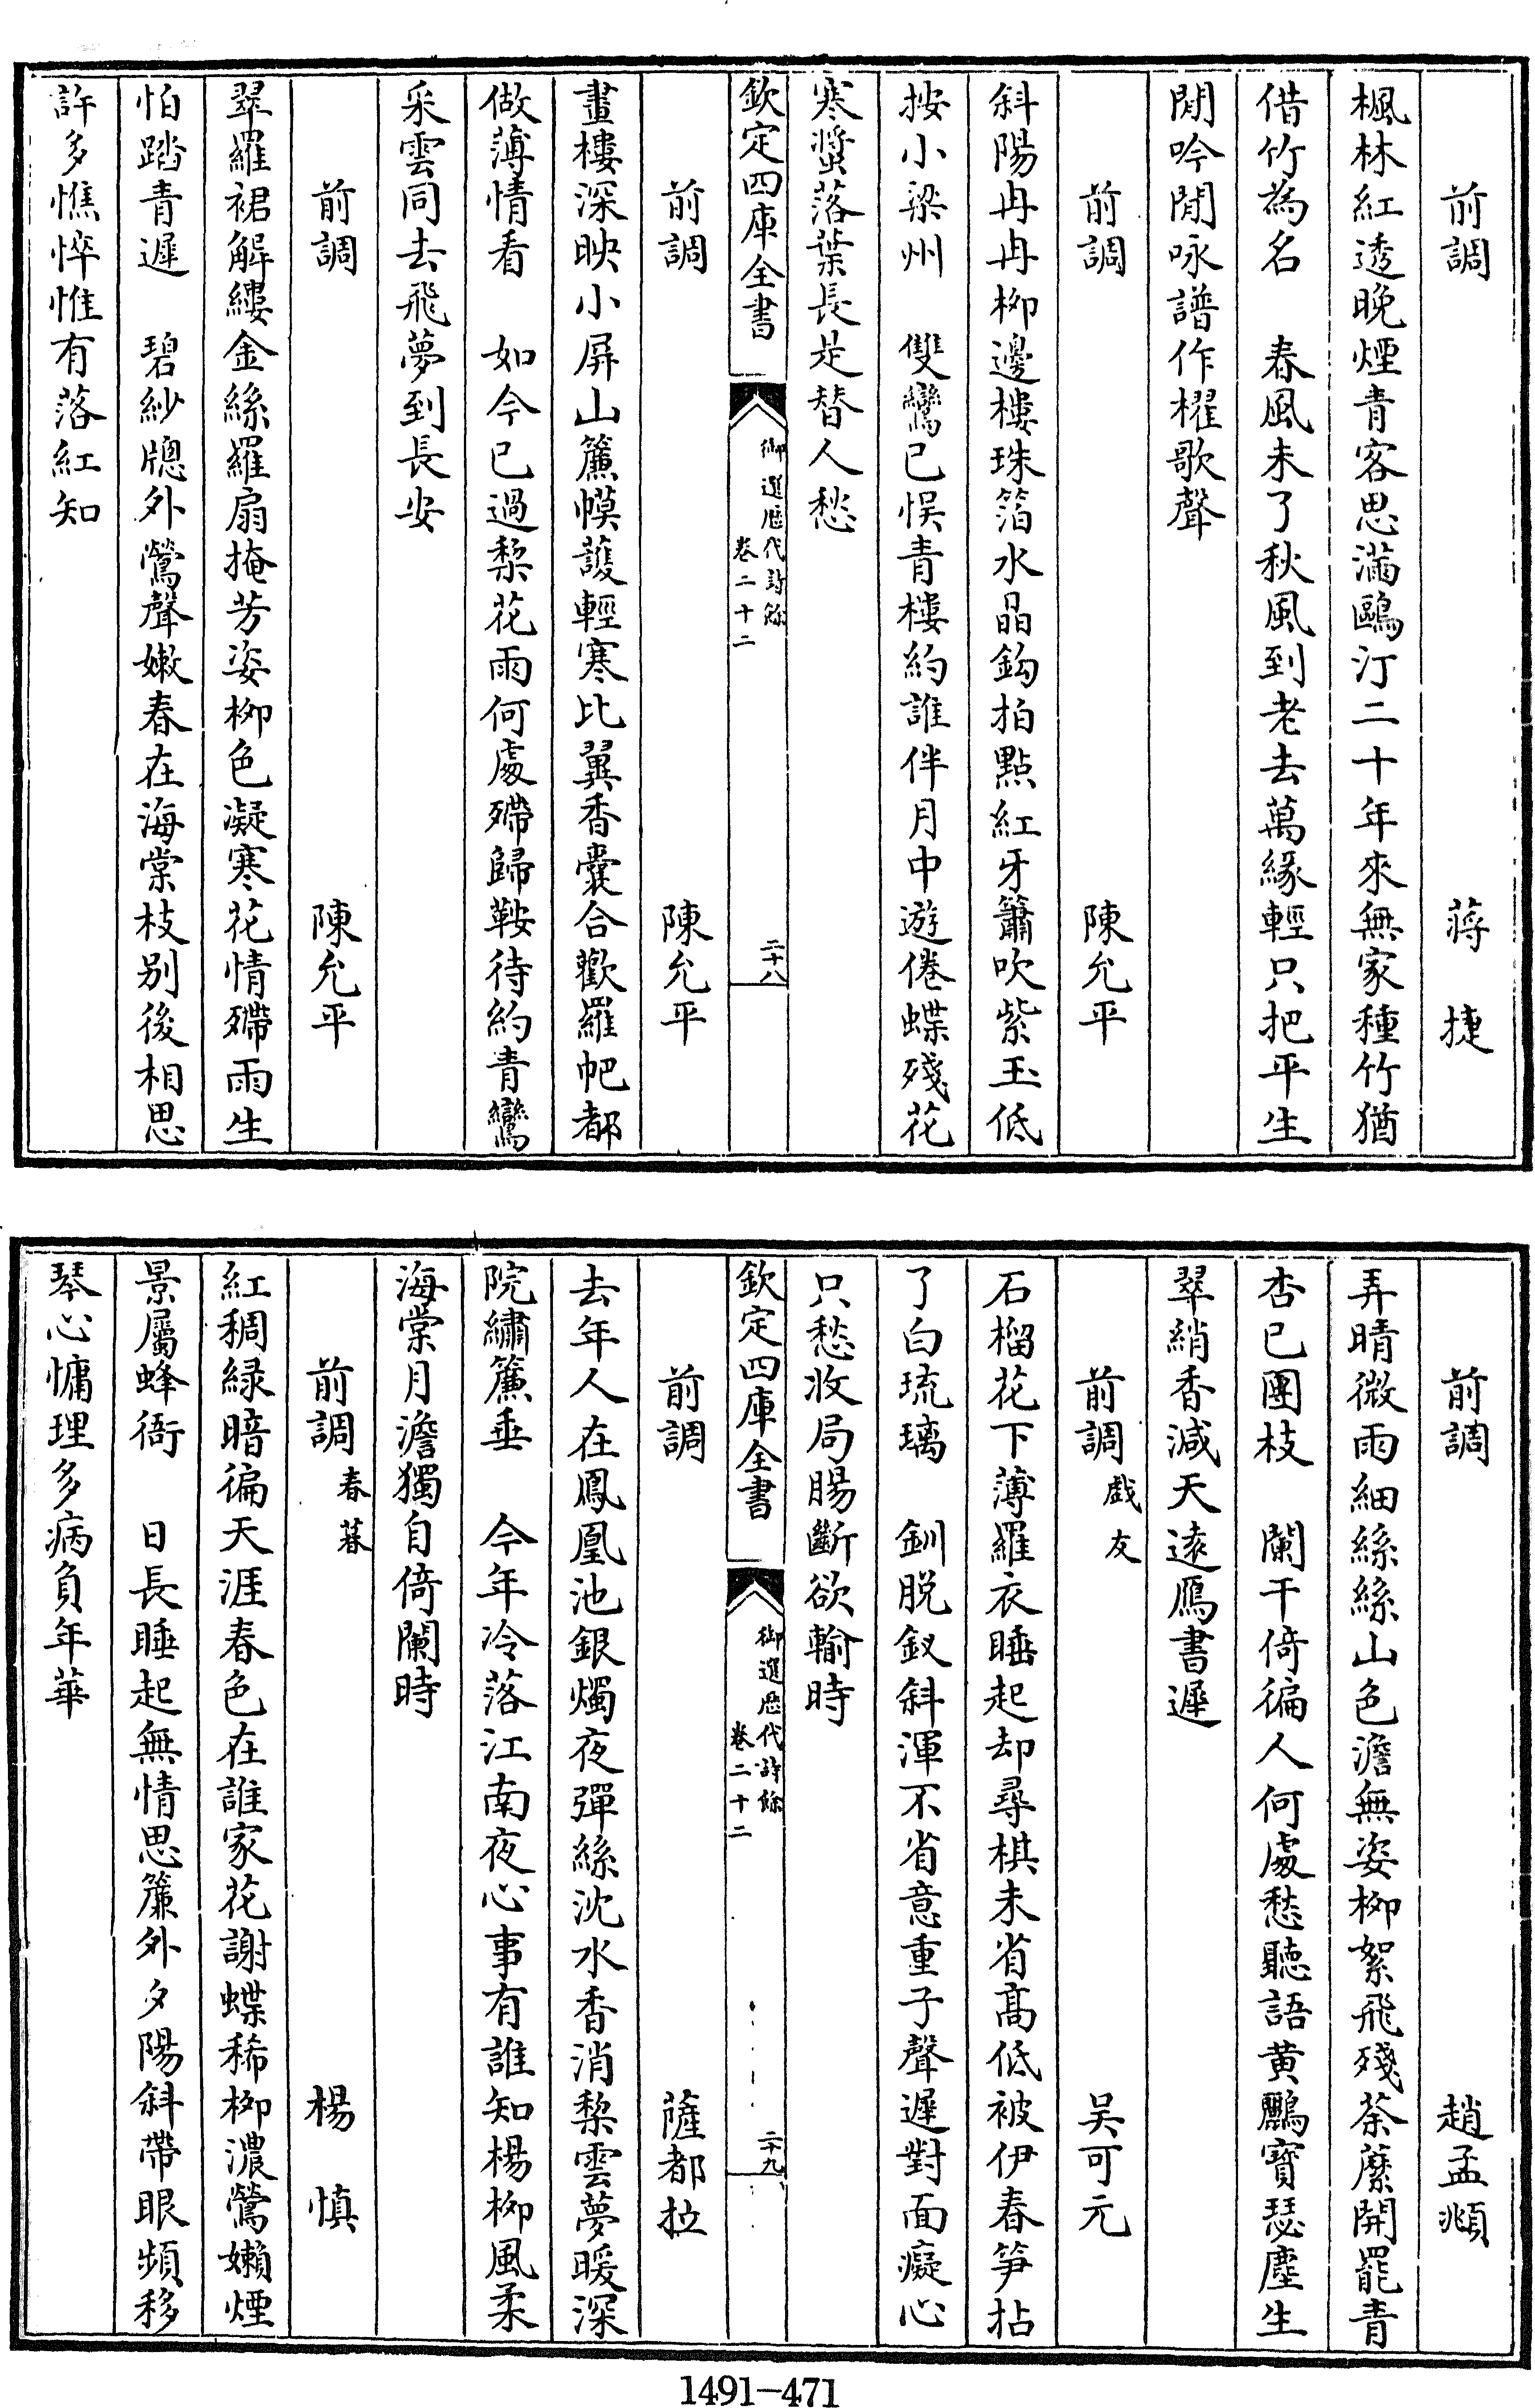 前調　蔣　捷
楓林紅透晚煙青客思滿鷗汀二十年來無家種竹猶
借竹為名　春風未了秋風到老去萬緣輕只把平生
閒吟閒咏譜作櫂歌聲
前調　陳允平
斜陽冉冉柳邊樓珠箔水晶鈎拍點紅牙簫吹紫玉低
按小梁州　雙鸞已悞青樓約誰伴月中遊倦蝶殘花
寒螿落葉長是替人愁
欽定四庫全書　御選歷代詩餘　卷二十二　二十八
前調　陳允平
畫樓深映小屏山簾幙護輕寒比翼香囊合歡羅帊都
做薄情看　如今已過棃花雨何處殢歸鞍待約青鸞
采雲同去飛夢到長安
前調　陳允平
翠羅裙解縷金絲羅扇掩芳姿柳色凝寒花情殢雨生
怕踏青遲　碧紗牕外鶯聲嫩春在海棠枝别後相思
許多憔悴惟有落紅知
前調　趙孟頫
弄晴微雨細絲絲山色澹無姿柳絮飛殘荼蘪開罷青
杏已團枝　闌干倚徧人何處愁聽語黄鸝寶瑟塵生
翠綃香減天遠鴈書遲
前調　戲友　吴可元
石榴花下薄羅衣睡起却尋棋未省髙低被伊春笋拈
了白琉璃　釧脱釵斜渾不省意重子聲遲對面癡心
只愁收局腸斷欲輸時
欽定四庫全書　御選歷代詩餘　卷二十二　二十九
前調　薩都拉
去年人在鳳凰池銀燭夜彈絲沈水香消棃雲夢暖深
院繡簾垂　今年冷落江南夜心事有誰知楊柳風柔
海棠月澹獨自倚闌時
前調　春暮　楊　慎
紅稠緑暗徧天涯春色在誰家花謝蝶稀柳濃鶯嬾煙
景屬蜂衙　日長睡起無情思簾外夕陽斜帶眼頻移
琴心慵理多病負年華
1491-471